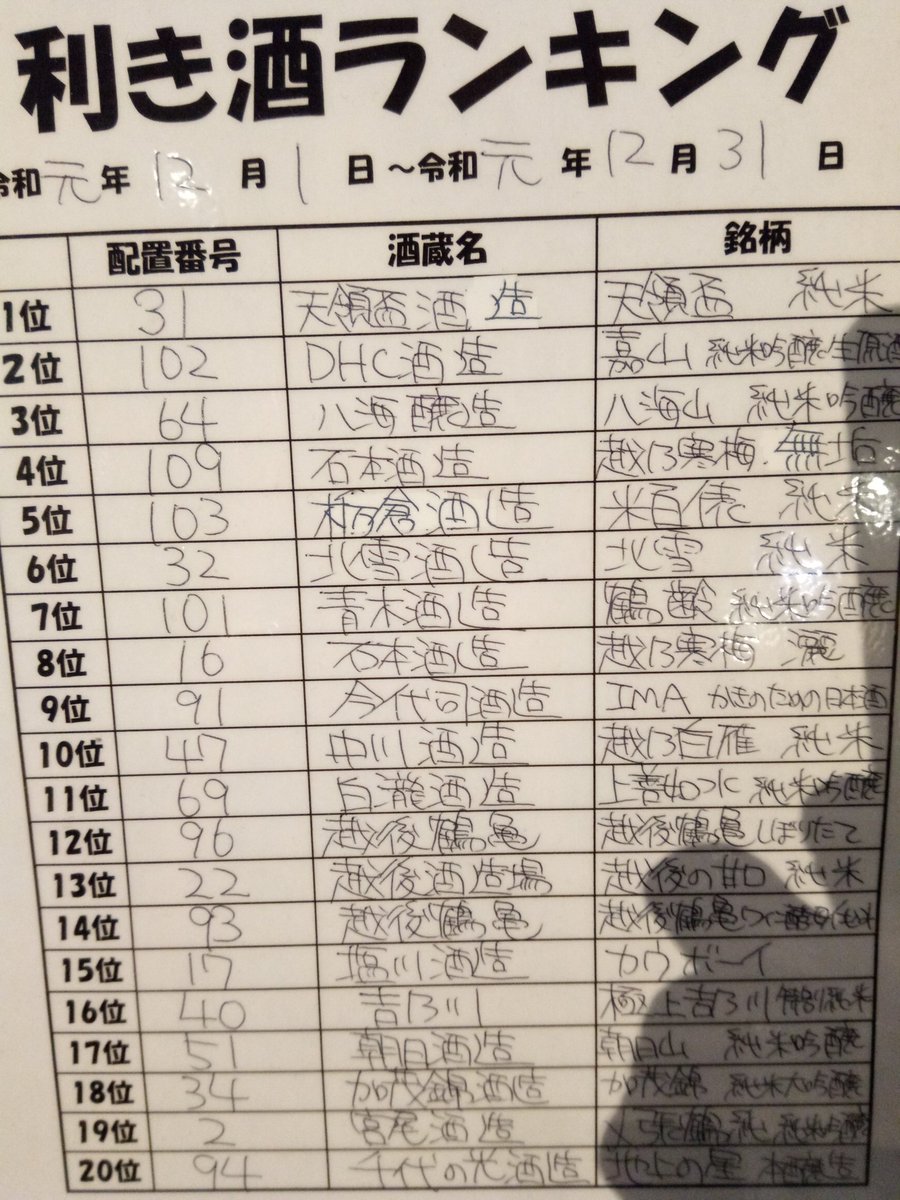 利き酒ランキング
令和元年12月1日～令和元年12月31日
配置番号 酒蔵名 銘柄
1位 31 天領盃酒造 天領盃 純米
2位 102 DHC酒造 嘉山 純米吟醸生原酒
3位 64 八海醸造 八海山 純米吟醸
4位 109 石本酒造 越乃寒梅 無垢
5位 103 栃倉酒造 米百俵 純米
6位 32 北雪酒造 北雪 純米
7位 101 青木酒造 鶴齢 純米吟醸
8位 16 石本酒造 越乃寒梅 灑
9位 91 今代司酒造 IMA かきのための日本酒
10位 47 中川酒造 越乃白雁 純米
11位 69 白瀧酒造 上善如水 純米吟醸
12位 96 越後鶴亀 越後鶴亀 しぼりたて
13位 22 越後酒造場 越後の甘口 純米
14位 93 越後鶴亀 越後鶴亀 純米
15位 17 塩川酒造 カウボーイ
16位 40 吉乃川 極上吉乃川 特別純米
17位 51 朝日酒造 朝日山 純米吟醸
18位 34 加茂錦酒造 加茂錦 純米大吟醸
19位 2 宮尾酒造 〆張鶴 純 純米吟醸
20位 94 千代の光酒造 地上の星 本醸造